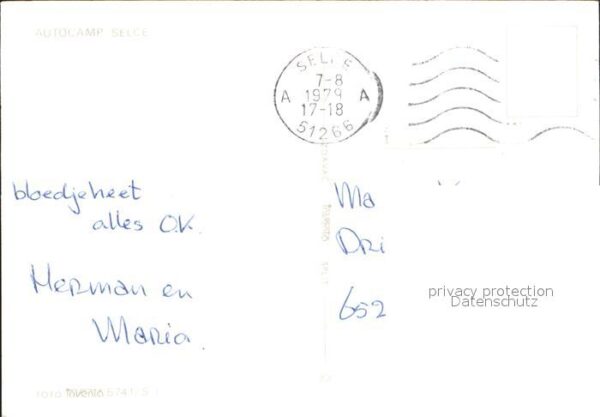 AUTOCAMP SELCE
SELCE
7-8
A 1979 A
17-18
51266
bloedjeheet
alles O.K.
Herman en
Maria.
Ma
Dri
652
privacy protection
Datenschutz
FOTO